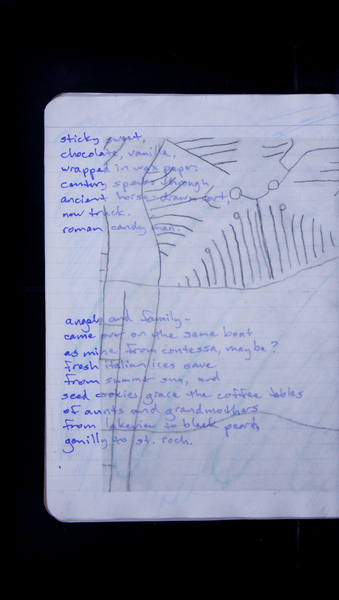 sticky sweet,
chocolate, vanilla,
wrapped in wax paper.
century spends through,
ancient horse-drawn cart,
now truck.
roman candy man.
angelo and family-
came over on the same boat
as mine from contessa, maybe?
fresh italian ices save
from summer sun, and
seed cookies grace the coffee tables
of aunts and grandmothers
from lakeview to black pearl
gentilly to st. roch.